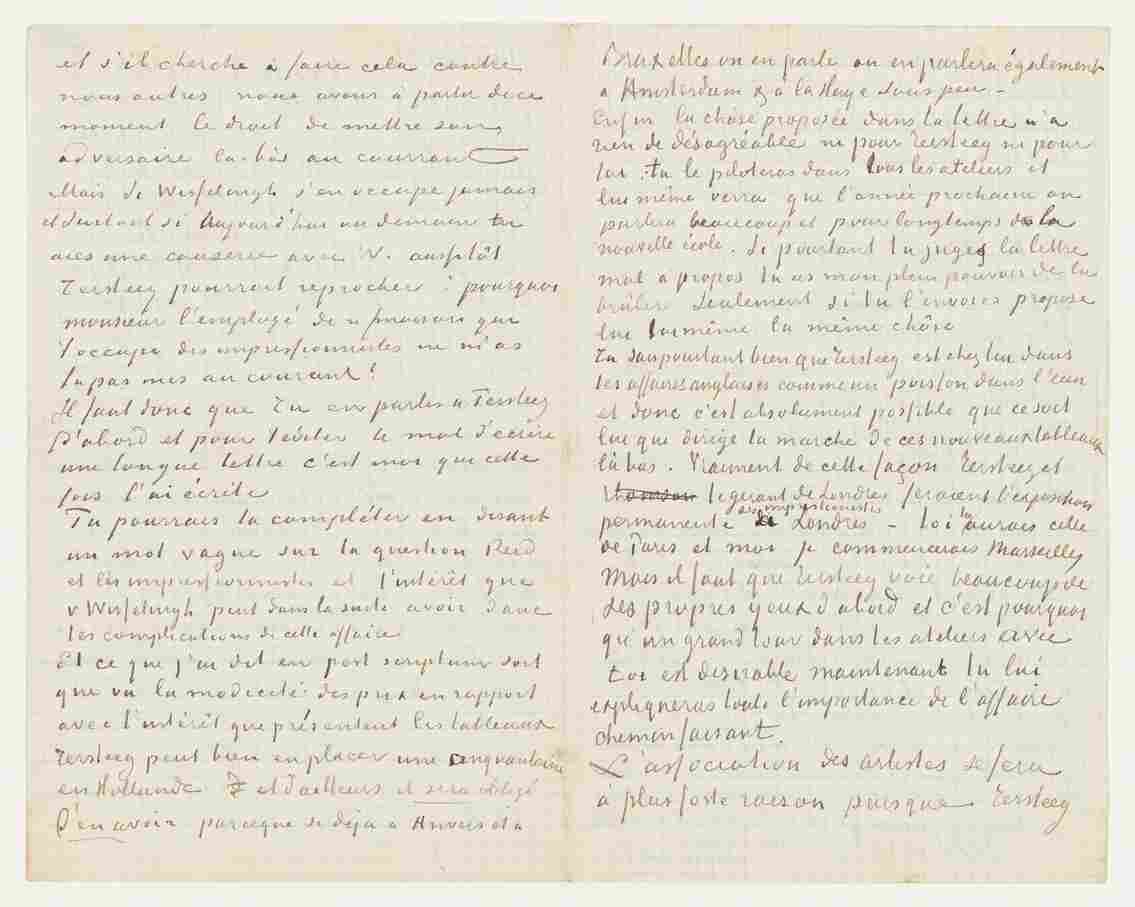 et s'il cherche à faire cela contre
nous autres nous avons à partir de ce
moment le droit de mettre son
adversaire la-bàs au courant
Mais de Wisselingh s'en occupe jamais
et surtout si aujourd'hui ou demain tu
aies une causerie avec W. aussitôt
Tersteeg pourrait reprocher : pourquoi
monsieur l'employé de n/maison qui
s'occupe des impressionnistes ne m'as
tu pas mis au courant!
Il faut donc que tu en parles a Tersteeg
D'abord et pour t'éviter le mal d'écrire
une longue lettre c'est moi qui cette
fois l'ai écrite
Tu pourrais la compléter en disant
un mot vague sur la question Reid
et les impressionnistes et l'intérêt que
v Wisselingh peut dans la suite avoir dans
les complications de cette affaire
Et ce que j'ai dit en post scriptum soit
que vu la modicité des prix en rapport
avec l'intérêt que présentent les tableaux
Tersteeg peut bien en placer une cinquantaine
en Hollande et d'ailleurs il sera obligé
D'en avoir parceque si déja à Anvers et a
Bruxelles on en parle on en parlera également
a Amsterdam & a la Haye sous peu –
Enfin la chôse proposée dans la lettre n'a
rien de désagréable ni pour Tersteeg ni pour
toi : tu le piloteras dans tous les ateliers et
lui même verra que l'année prochaine on
parlera beaucoup et pour longtemps de la
nouvelle école. Si pourtant tu juges la lettre
mal a propos tu as mon plein pouvoir de la
brûler seulement si tu l'envoies propose
lui toi même la même chôse
Tu sais pourtant bien que Tersteeg est chez lui dans
les affaires anglaises comme un poisson dans l'eau
et donc c'est absolument possible que ce soit
lui qui dirige la marche de ces nouveaux tableaux
là bas. Vraiment de cette façon Tersteeg et
Thomson le gérant de Londres feraient l'exposition
permanente des impressionnistes de Londres – toi tu aurais celle
de Paris et moi je commencerais Marseilles
Mais il faut que Tersteeg voie beaucoup de
ses propres yeux d'abord et c'est pourquoi
qu'un grand tour dans les ateliers avec
toi est desirable maintenant tu lui
expliqueras toute l'importance de l'affaire
chemin faisant.
L'association des artistes se fera
à plus forte raison puisque Tersteeg